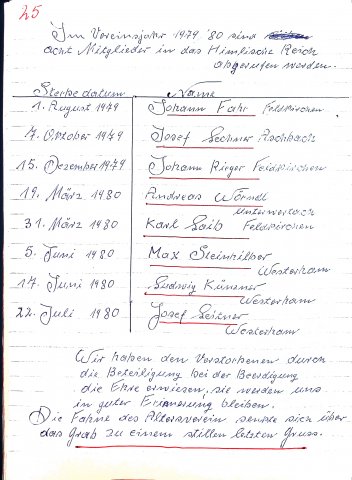 25
Im Vereinsjahr 1979 '80 sind
acht Mitglieder in das Himlische Reich
abgerufen worden.
Sterbe datum Name
1. August 1979 Johann Fahr Feldkirchen
7. Oktober 1979 Josef Lechner Aschbach
15. Dezember 1979 Johann Rieger Feldkirchen
19. März 1980 Andreas Wörndl
Unterwertach
31. März 1980 Karl Laib Feldkirchen
5. Juni 1980 Max Steinhilber
Westerham
17. Juni 1980 Ludwig
Westerham
22. Juli 1980 Josef Leitner
Westerham
Wir haben den Verstorbenen durch
die Beteiligung bei der Beerdigung
die Ehre erwiesen, sie werden uns
in guter Erinnerung bleiben.
Die Fahne des Altersverein senkte sich über
das Grab zu einem stillen letzten Gruss.